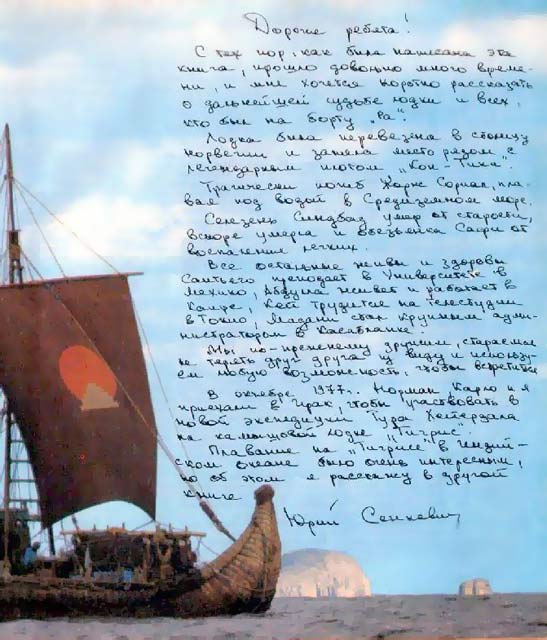 Дорогие ребята!
С тех пор, как была написана эта
книга, прошло довольно много време-
ни, и мне хочется коротко рассказать
о дальнейшей судьбе лодки и всех,
кто был на борту „Ра".
Лодка была перевезена в столицу
Норвегии и заняла место рядом с
легендарным плотом „Кон-Тики".
Трагически погиб Жорж Сориал, пла-
вая под водой в Средиземном море.
Селезень Синдбад умер от старости,
вскоре умерла и обезьянка Сафи от
воспаления легких.
Все остальные живы и здоровы
Сантьяго преподает в Университете в
Мехико, Абдулла живет и работает в
Каире, Кей трудится на телестудии
в Токио, Мадани стал крупным адми-
нистратором в Касабланке.
Мы по-прежнему дружим, стараемся
не терять друг друга из виду и использу-
ем любую возможность, чтобы встретиться
В октябре 1977г. Норман, Карло и я
приехали в Ирак, чтобы участвовать в
новой экспедиции Тура Хейердала
на камышовой лодке „Тигрис".
Плавание на „Тигрисе" в Индий-
ском океане было очень интересным,
но об этом я расскажу в другой
книге
Юрий Сенкевич